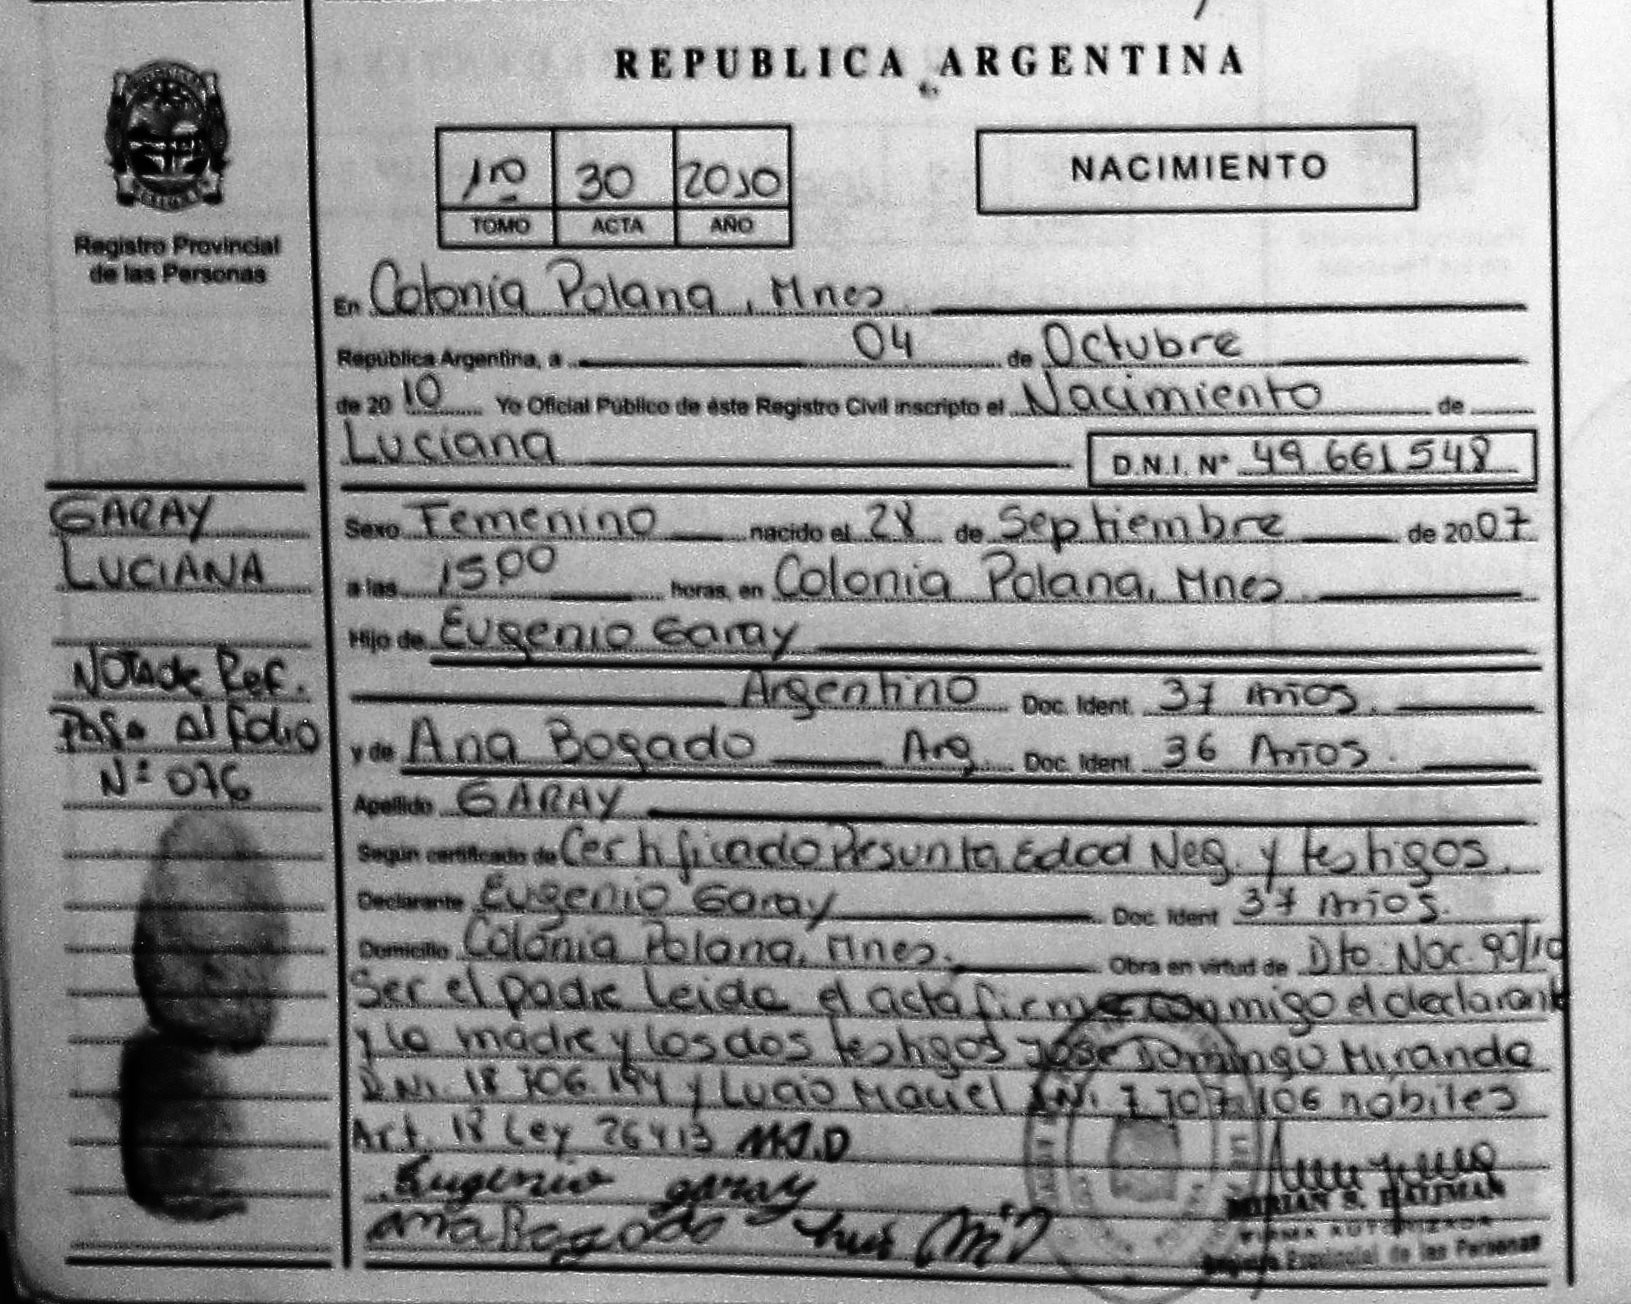 REPUBLICA ARGENTINA
1ro 30 2010
TOMO ACTA AÑO
NACIMIENTO
Registro Provincial
de las Personas
En Colonia Polana, Mnes.
República Argentina, a 04 de Octubre
de 2010 Yo Oficial Público de éste Registro Civil inscripto el Nacimiento de
Luciana D.N.I. Nº 49.661.548
GARAY
LUCIANA
Nota de Ref.
Pasa al folio
Nº 076
Sexo Femenino nacido el 28 de Septiembre de 2007
a las 15,00 horas, en Colonia Polana, Mnes.
Hijo de Eugenio Garay
Argentino Doc. Ident. 37 Años.
y de Ana Bogado Arg. Doc. Ident. 36 Años.
Apellido GARAY
Según certificado de Certificado Presunta Edad Neg. y testigos.
Declarante Eugenio Garay Doc. Ident 37 Años.
Domicilio Colonia Polana, Mnes. Obra en virtud de Dto. Nac. 90/10
Ser el padre leida el acta firma conmigo el declarante
y la madre y los dos testigos Jose Domingo Miranda
D.N.I. 18.706.194 y Lucio Maciel D.N.I. 7.707.106 habiles
Art. 18 Ley 26413 M.J.D
Eugenio garay
Ana Bogado
MIRIAN S. DALJMAN
FIRMA AUTORIZADA
Registro Provincial de las Personas